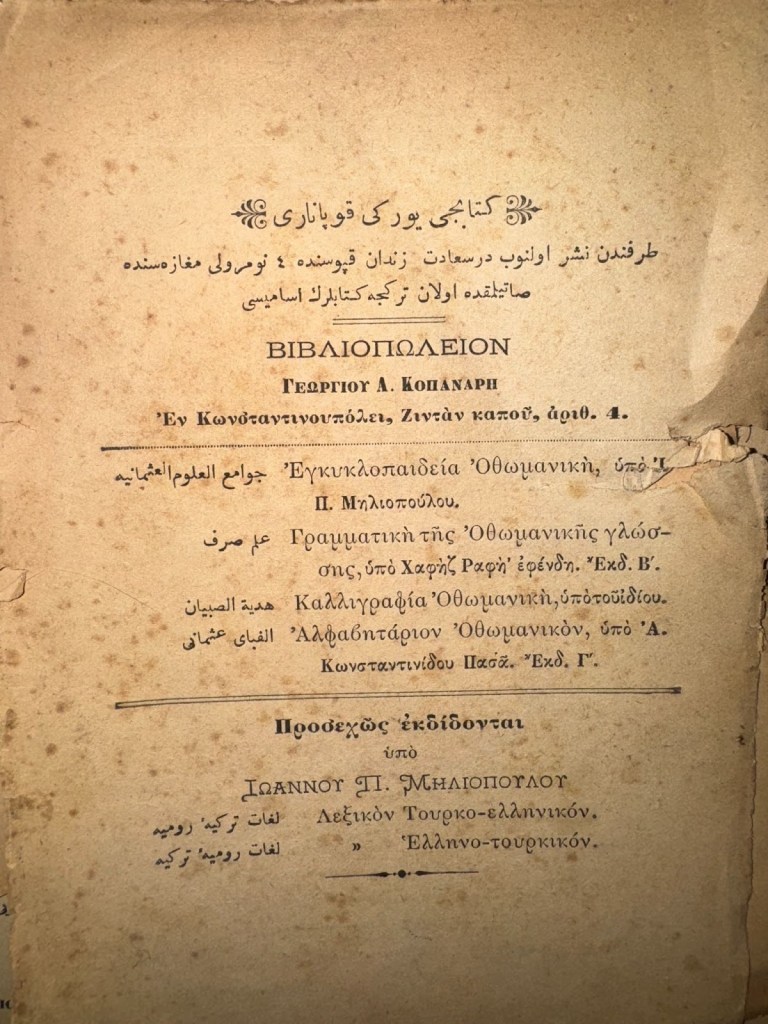 كتابجی یوركی قوپاناری
طرفندن نشر اولنوب درسعادت زندان قپوسنده ٤ نومرولی مغازه‌سنده
صاتیلقده اولان تركیجه كتابلرك اسامیسی
ΒΙΒΛΙΟΠΩΛΕΙΟΝ
ΓΕΩΡΓΙΟΥ Α. ΚΟΠΑΝΑΡΗ
Ἐν Κωνσταντινουπόλει, Ζιντὰν καποῦ, ἀριθ. 4.
جوامع العلوم العثمانیه Ἐγκυκλοπαιδεία Ὀθωμανικὴ, ὑπὸ Ἰ.
Π. Μηλιοπούλου.
علم صرف Γραμματικὴ τῆς Ὀθωμανικῆς γλώσ-
σης, ὑπὸ Χαφὴζ Ραφὴ' ἐφένδη. Ἔκδ. Β΄.
هدیة الصبیان Καλλιγραφία Ὀθωμανικὴ, ὑπὸ τοῦ ἰδίου.
الفبای عثمانی Ἀλφαβητάριον Ὀθωμανικὸν, ὑπὸ Ἀ.
Κωνσταντινίδου Πασᾶ. Ἔκδ. Γ΄.
Προσεχῶς ἐκδίδονται
ὑπὸ
ΙΩΑΝΝΟΥ Π. ΜΗΛΙΟΠΟΥΛΟΥ
لغات تركیهٔ رومیه Λεξικὸν Τουρκο-ελληνικόν.
لغات رومیهٔ تركیه » Ἑλληνο-τουρκικόν.